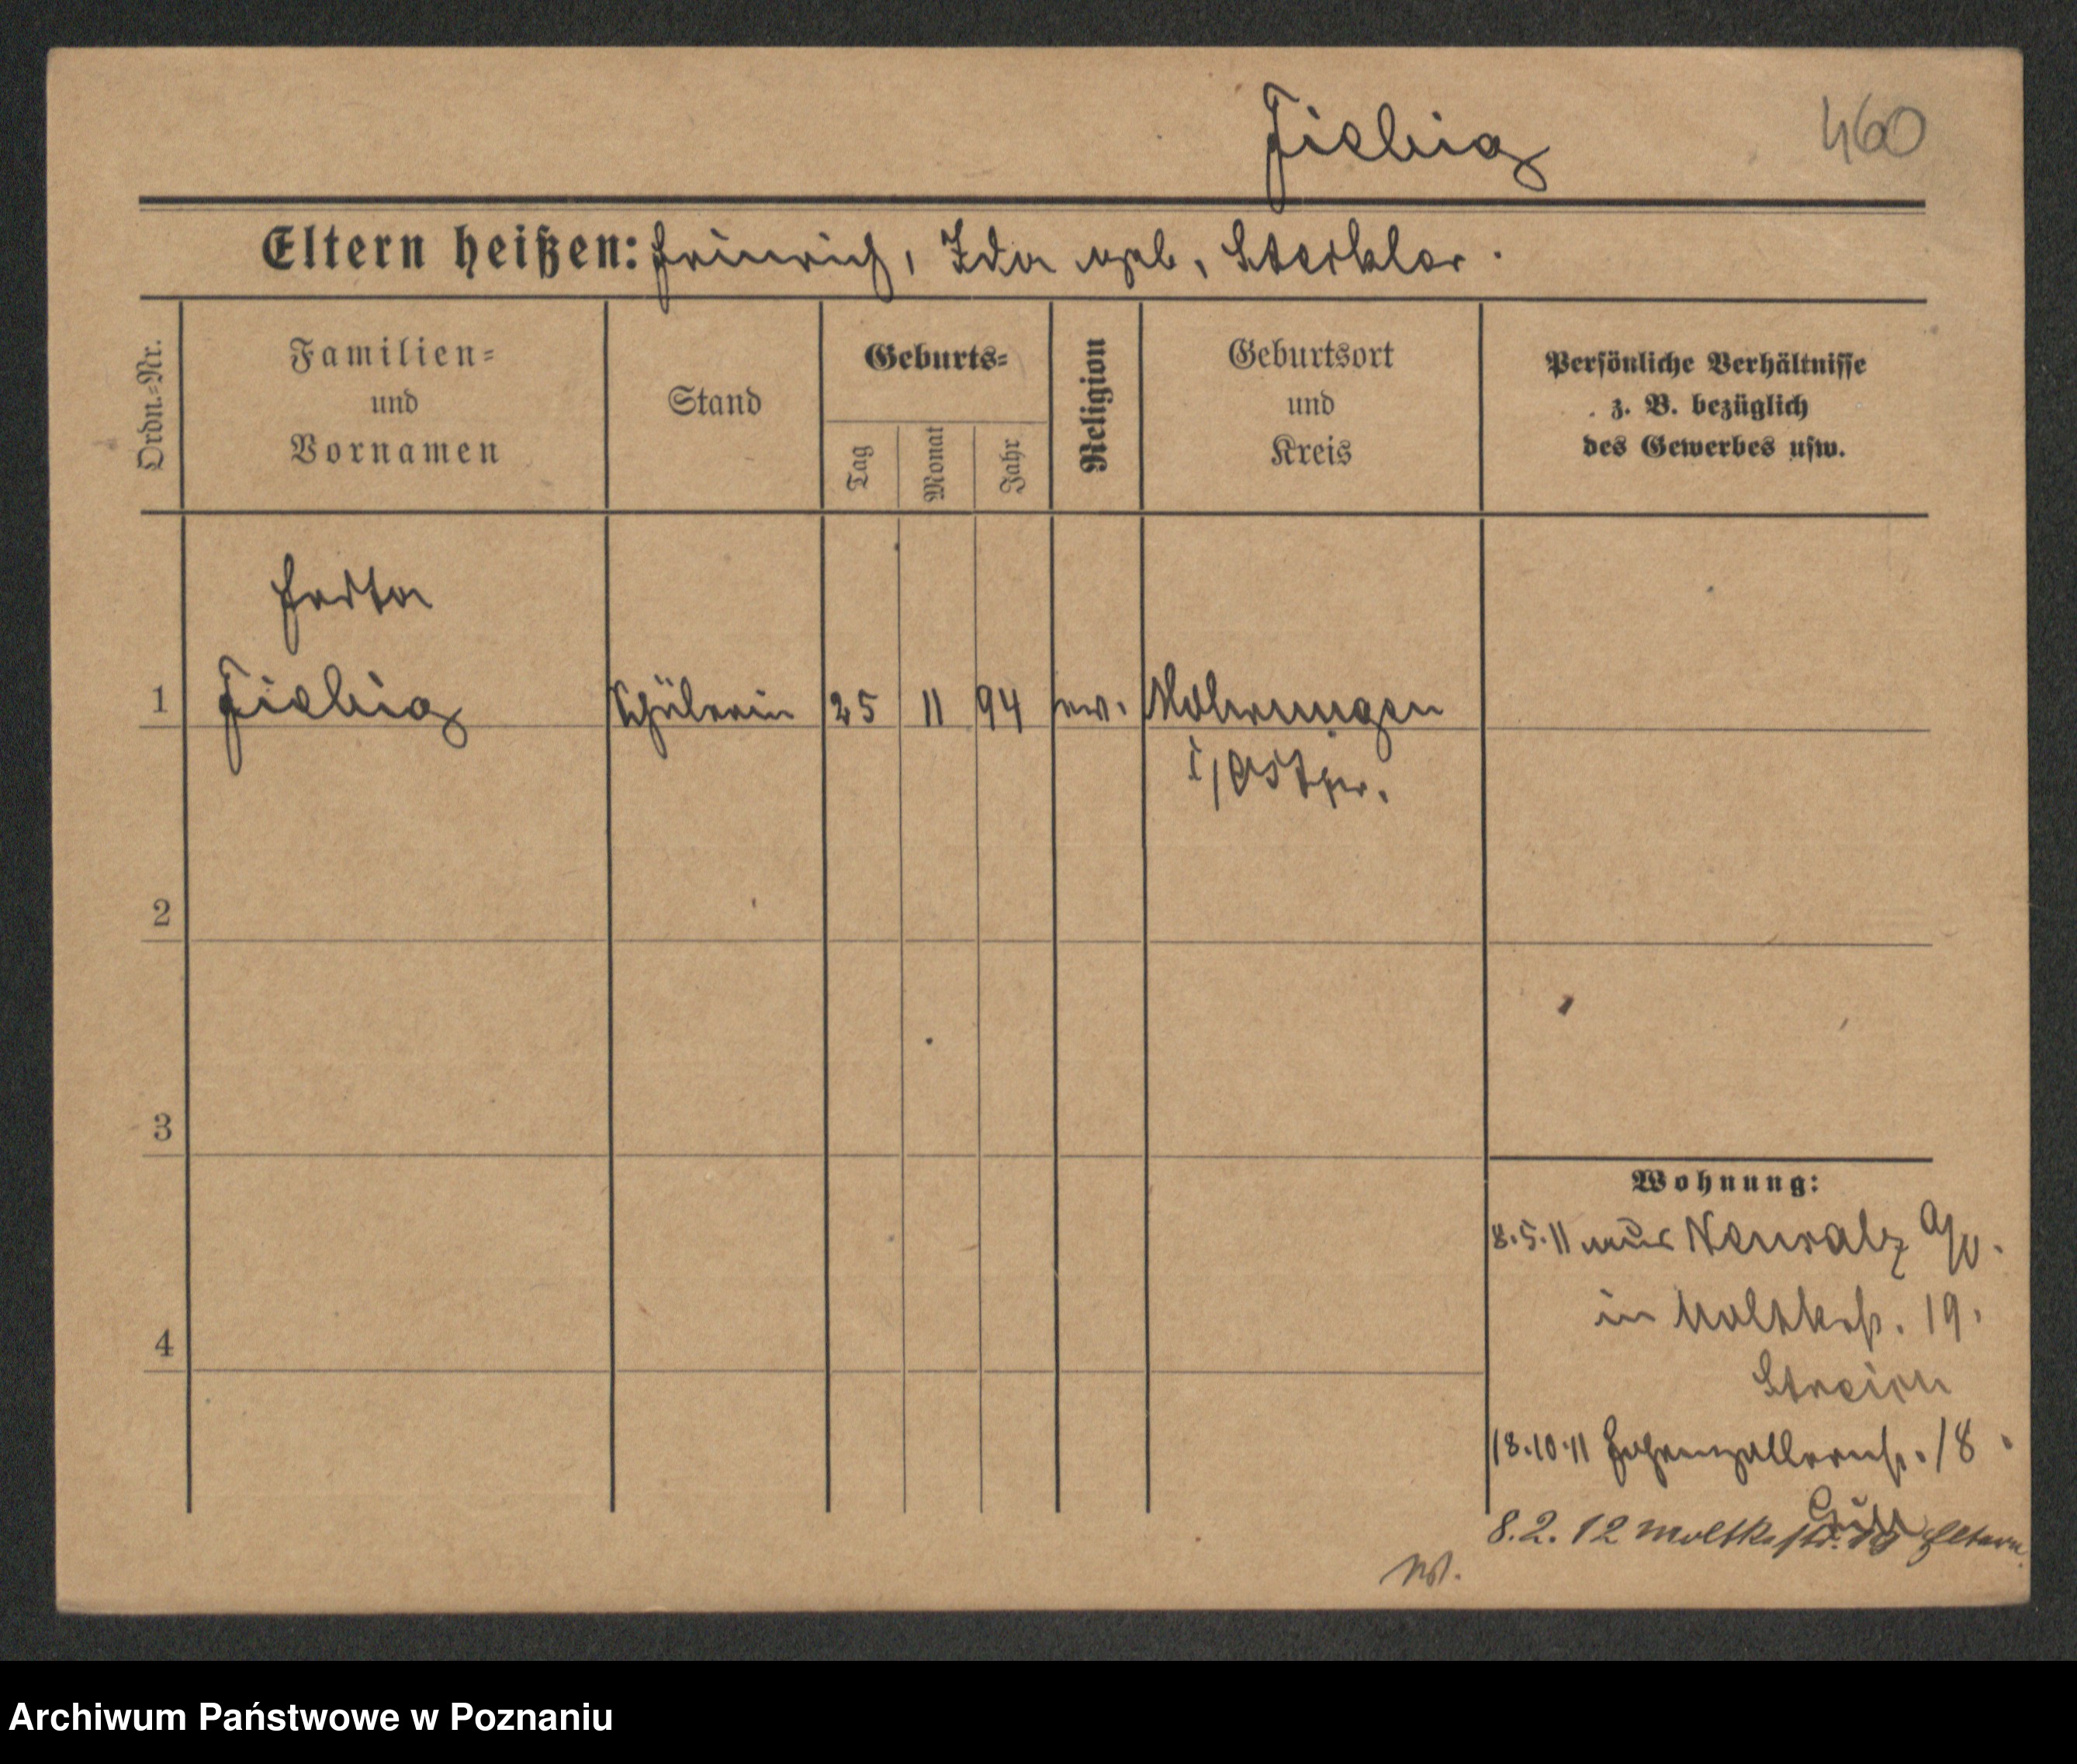 Fiebig 460
Eltern heißen: Heinrich, Ida geb. Steckler.
Ordn.-Nr.
Familien-
und
Vornamen
Stand
Geburts-
Tag
Monat
Jahr
Religion
Geburtsort
und
Kreis
Persönliche Verhältnisse
z. B. bezüglich
des Gewerbes usw.
Herta
1 Fiebig Schülerin 25 11 94 ev. Mohrungen
i/Ostpr.
2
3
4
Wohnung:
8.5.11 aus Neusalz a/O.
in Moltkestr. 19.
18.10.11 Hohenzollernstr. 18.
8.2.12 Moltkestr. 19 Eltern
Archiwum Państwowe w Poznaniu